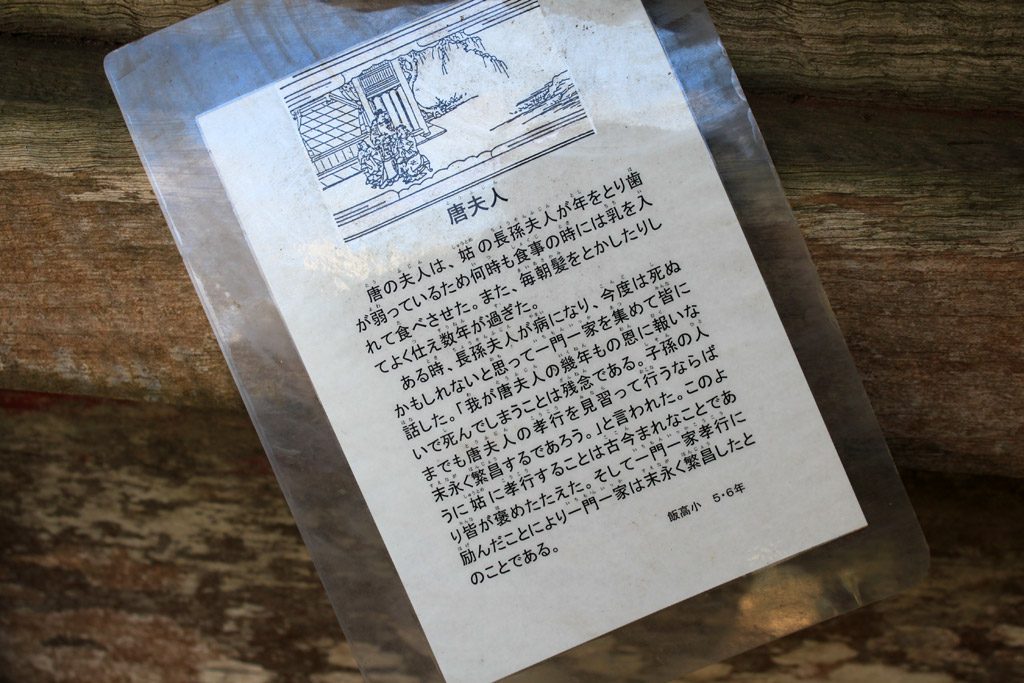 唐夫人
唐の夫人は、姑の長孫夫人が年をとり歯
が弱っているため何時も食事の時には乳を入
れて食べさせた。また、毎朝髪をとかしたりし
てよく仕え数年が過ぎた。
ある時、長孫夫人が病になり、今度は死ぬ
かもしれないと思って一門一家を集めて皆に
話した。「我が唐夫人の幾年もの恩に報いな
いで死んでしまうことは残念である。子孫の人
までも唐夫人の孝行を見習って行うならば
末永く繁昌するであろう。」と言われた。このよ
うに姑に孝行することは古今まれなことであ
り皆が褒めたたえた。そして一門一家孝行に
励んだことにより一門一家は末永く繁昌したと
のことである。
飯高小 5・6年